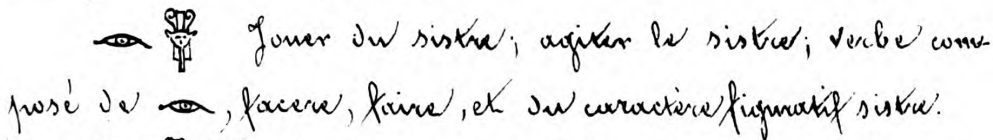 𓁹 𓏣 Jouer du sistre; agiter le sistre; verbe com-
posé de 𓁹, facere, faire, et du caractère figuratif sistre.